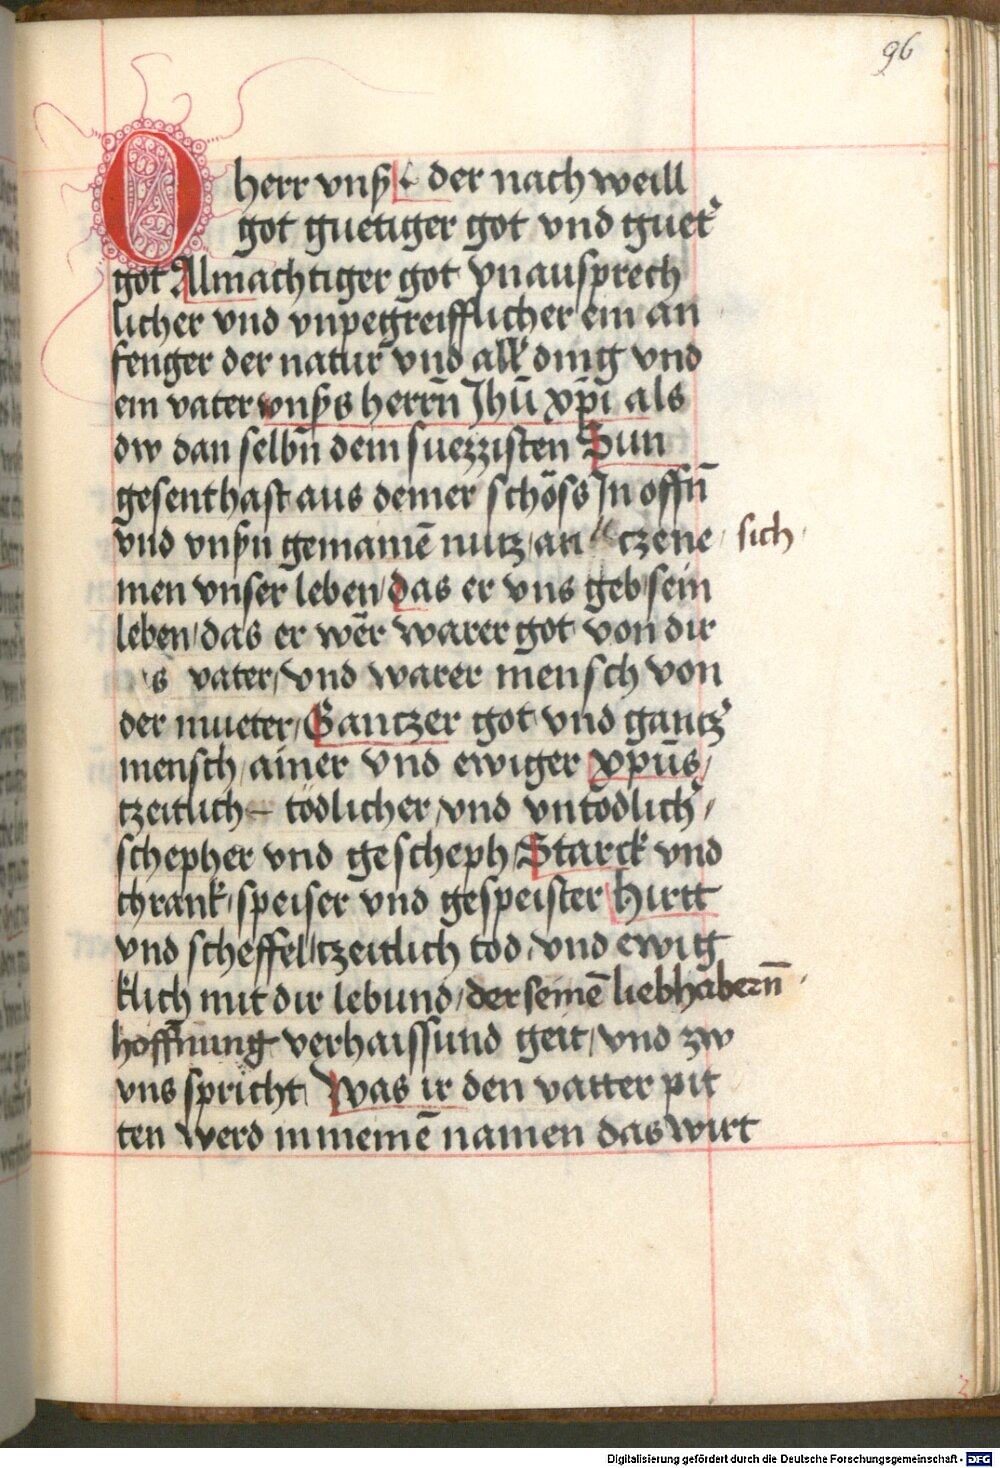 96
O herr vnß der nach weill
got guetiger got vnd guet'
got Almachtiger got vnausprech
licher vnd vnpegreifflicher ein an
fenger der natur vnd all' ding vnd
ein vater vnßs herrn̄ Jhū xp̄i als
dw dan selbn̄ dein suezzisten Sun
gesent hast aus deiner schöss In offn̄
vnd vnßn gemainē nutz / an tzene sich
men vnser leben / das er vns geb sein
leben / das er wer warer got von dir
vater / vnd warer mensch von
der mueter / Gantzer got vnd gantz'
mensch / ainer vnd ewiger xp̄us /
tzeitlich tödlicher / vnd vntodlich' /
schepher vnd gescheph / Starck vnd
chrank / speiser vnd gespeister Hirtt
vnd scheffel / tzeitlich tod / vnd ewig
klich mit dir lebund / der seinē liebhabernn̄
hoffnung verhaissund geit / vnd zw
vns spricht Was ir den vatter pit
ten werd in meinē namen das wirt
2
Digitalisierung gefördert durch die Deutsche Forschungsgemeinschaft - DFG